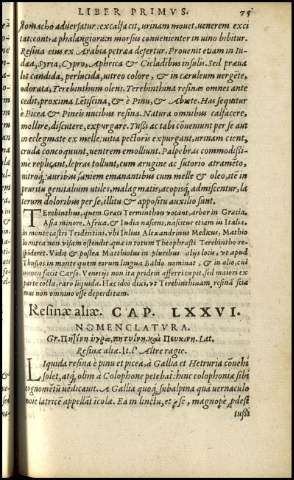 LIBER PRIMVS. 75
stomacho aduersatur. excalfacit, urinam mouet, uenerem exci
tat: contra phalangiorum morsus conuenienter in uino bibitur.
Resina eius ex Arabia petræa defertur. Prouenit etiam in Iu-
dæa, Syria, Cypro, Aphrica & Cicladibus insulis. Sed præua
let candida, perlucida, uitreo colore, & in cæruleum uergẽte,
odorata, Terebinthum olens. Terebinthina resinas omnes ante
cedit, proxima Letiscina, & è Pinu, & Abiete. Has sequitur
è Picea & Pineis nucibus resina. Natura omnibus calfacere,
mollire, discutere, expurgare. Tussi ac tabi cõueniunt per se aut
in eclegmate ex melle, uitia pectoris expurgant, urinam cient,
cruda concoquunt, uentrem emolliunt. Palpebras commodissi-
mè replicant, lepras tollunt, cum ærugine ac sutorio atramẽto,
nitroq; auribus saniem emanantibus cum melle & oleo, itẽ in
pruritu genitalium utiles, malagmatis, acopisq; admiscentur, la
terum doloribus per se, illitu & appositu auxilio sunt.
Terebinthus, quem Græci Terminthon uocant, arbor in Græcia,
Asia minore, Africa, & India nasci solent, nascitur etiam in Italia,
in monte castri Tridentini. ubi Iulius Alexandrinus Medicus, Mathio
lo nitra non uisam ostendit. quæ in totum Theophrasti Terebintho re-
spondet. Vidi & postea Matthiolus in pluribus alijs locis, ut apud
in monte quem eorum lingua
facit Carso. Venetijs non ita pridem asserri
parte colta, raro liquida. Hæc ideo dixi, ut Terebinthinam resinã sciā
mus non omnino esse deperditam.
Resinæ aliæ. CAP. LXXVI.
NOMENCLATURA.
Gr. Πητίνη ὑγρὰ, πιτυΐνη, καὶ Πευκίνη. Lat.
Resinæ aliæ. It. l' Altre ragie.
Liquida resina è pinu et picea, à Gallia et Hetruria cõuehi
solet, atq; olim à Colophone petebat, hinc colophoniæ sibi
cognomẽtũ uẽdicauit. A Gallia quoq; subalpina quã uernaculo
nomine laricẽ appellãt icolæ. Ea in linctu, et p se, magnopè pdest
tussi